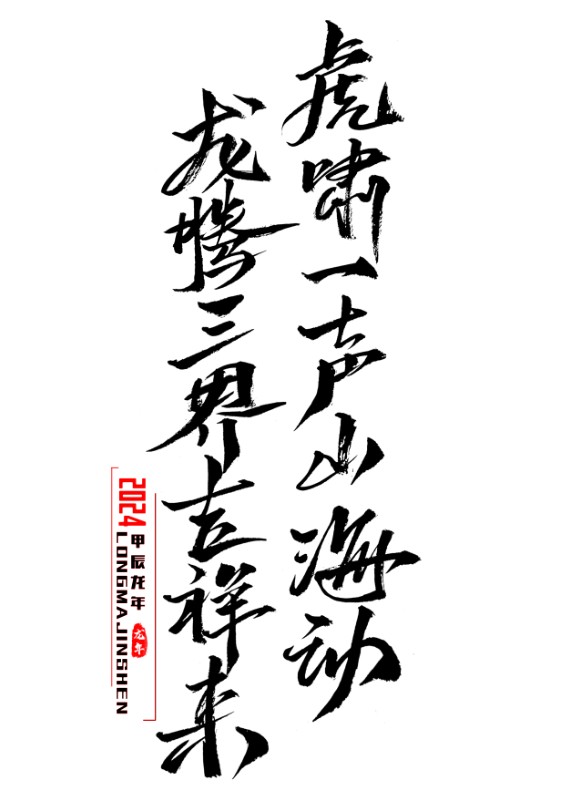 虎啸一声山海动
龙腾三界吉祥来
2024
甲辰龙年
LONGMAJINSHEN
龙年